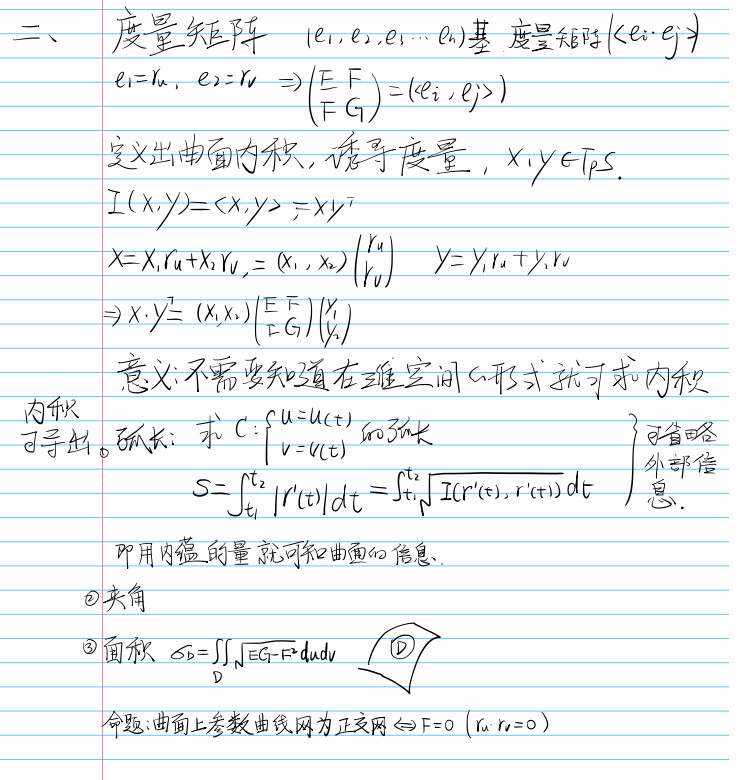 二、 度量矩阵 (e₁,e₂,e₃…eₙ)基 度量矩阵(<eᵢ·eⱼ>)
e₁=rᵤ, e₂=rᵥ ⇒ (E F / F G) = (<eᵢ, eⱼ>)
定义出曲面内积, 诱导度量, x,y∈TₚS.
I(x,y)=<x,y>=xyᵀ
x=x₁rᵤ+x₂rᵥ,=(x₁,x₂)(rᵤ / rᵥ) y=y₁rᵤ+y₂rᵥ
⇒x·yᵀ=(x₁x₂)(E F / F G)(y₁ / y₂)
意义:不需要知道在三维空间的形式就可求内积
内积可导出。弧长: 求 C:{u=u(t) / v=v(t) 的弧长
S=∫_{t₁}^{t₂}|r'(t)|dt=∫_{t₁}^{t₂}√I(r'(t),r'(t)) dt } 可省略外部信息.
即用内蕴的量就可知曲面的信息.
②夹角
③面积 σ_D=∬_D √EG-F² dudv D
命题:曲面上参数曲线网为正交网⇔F=0 (rᵤ·rᵥ=0)